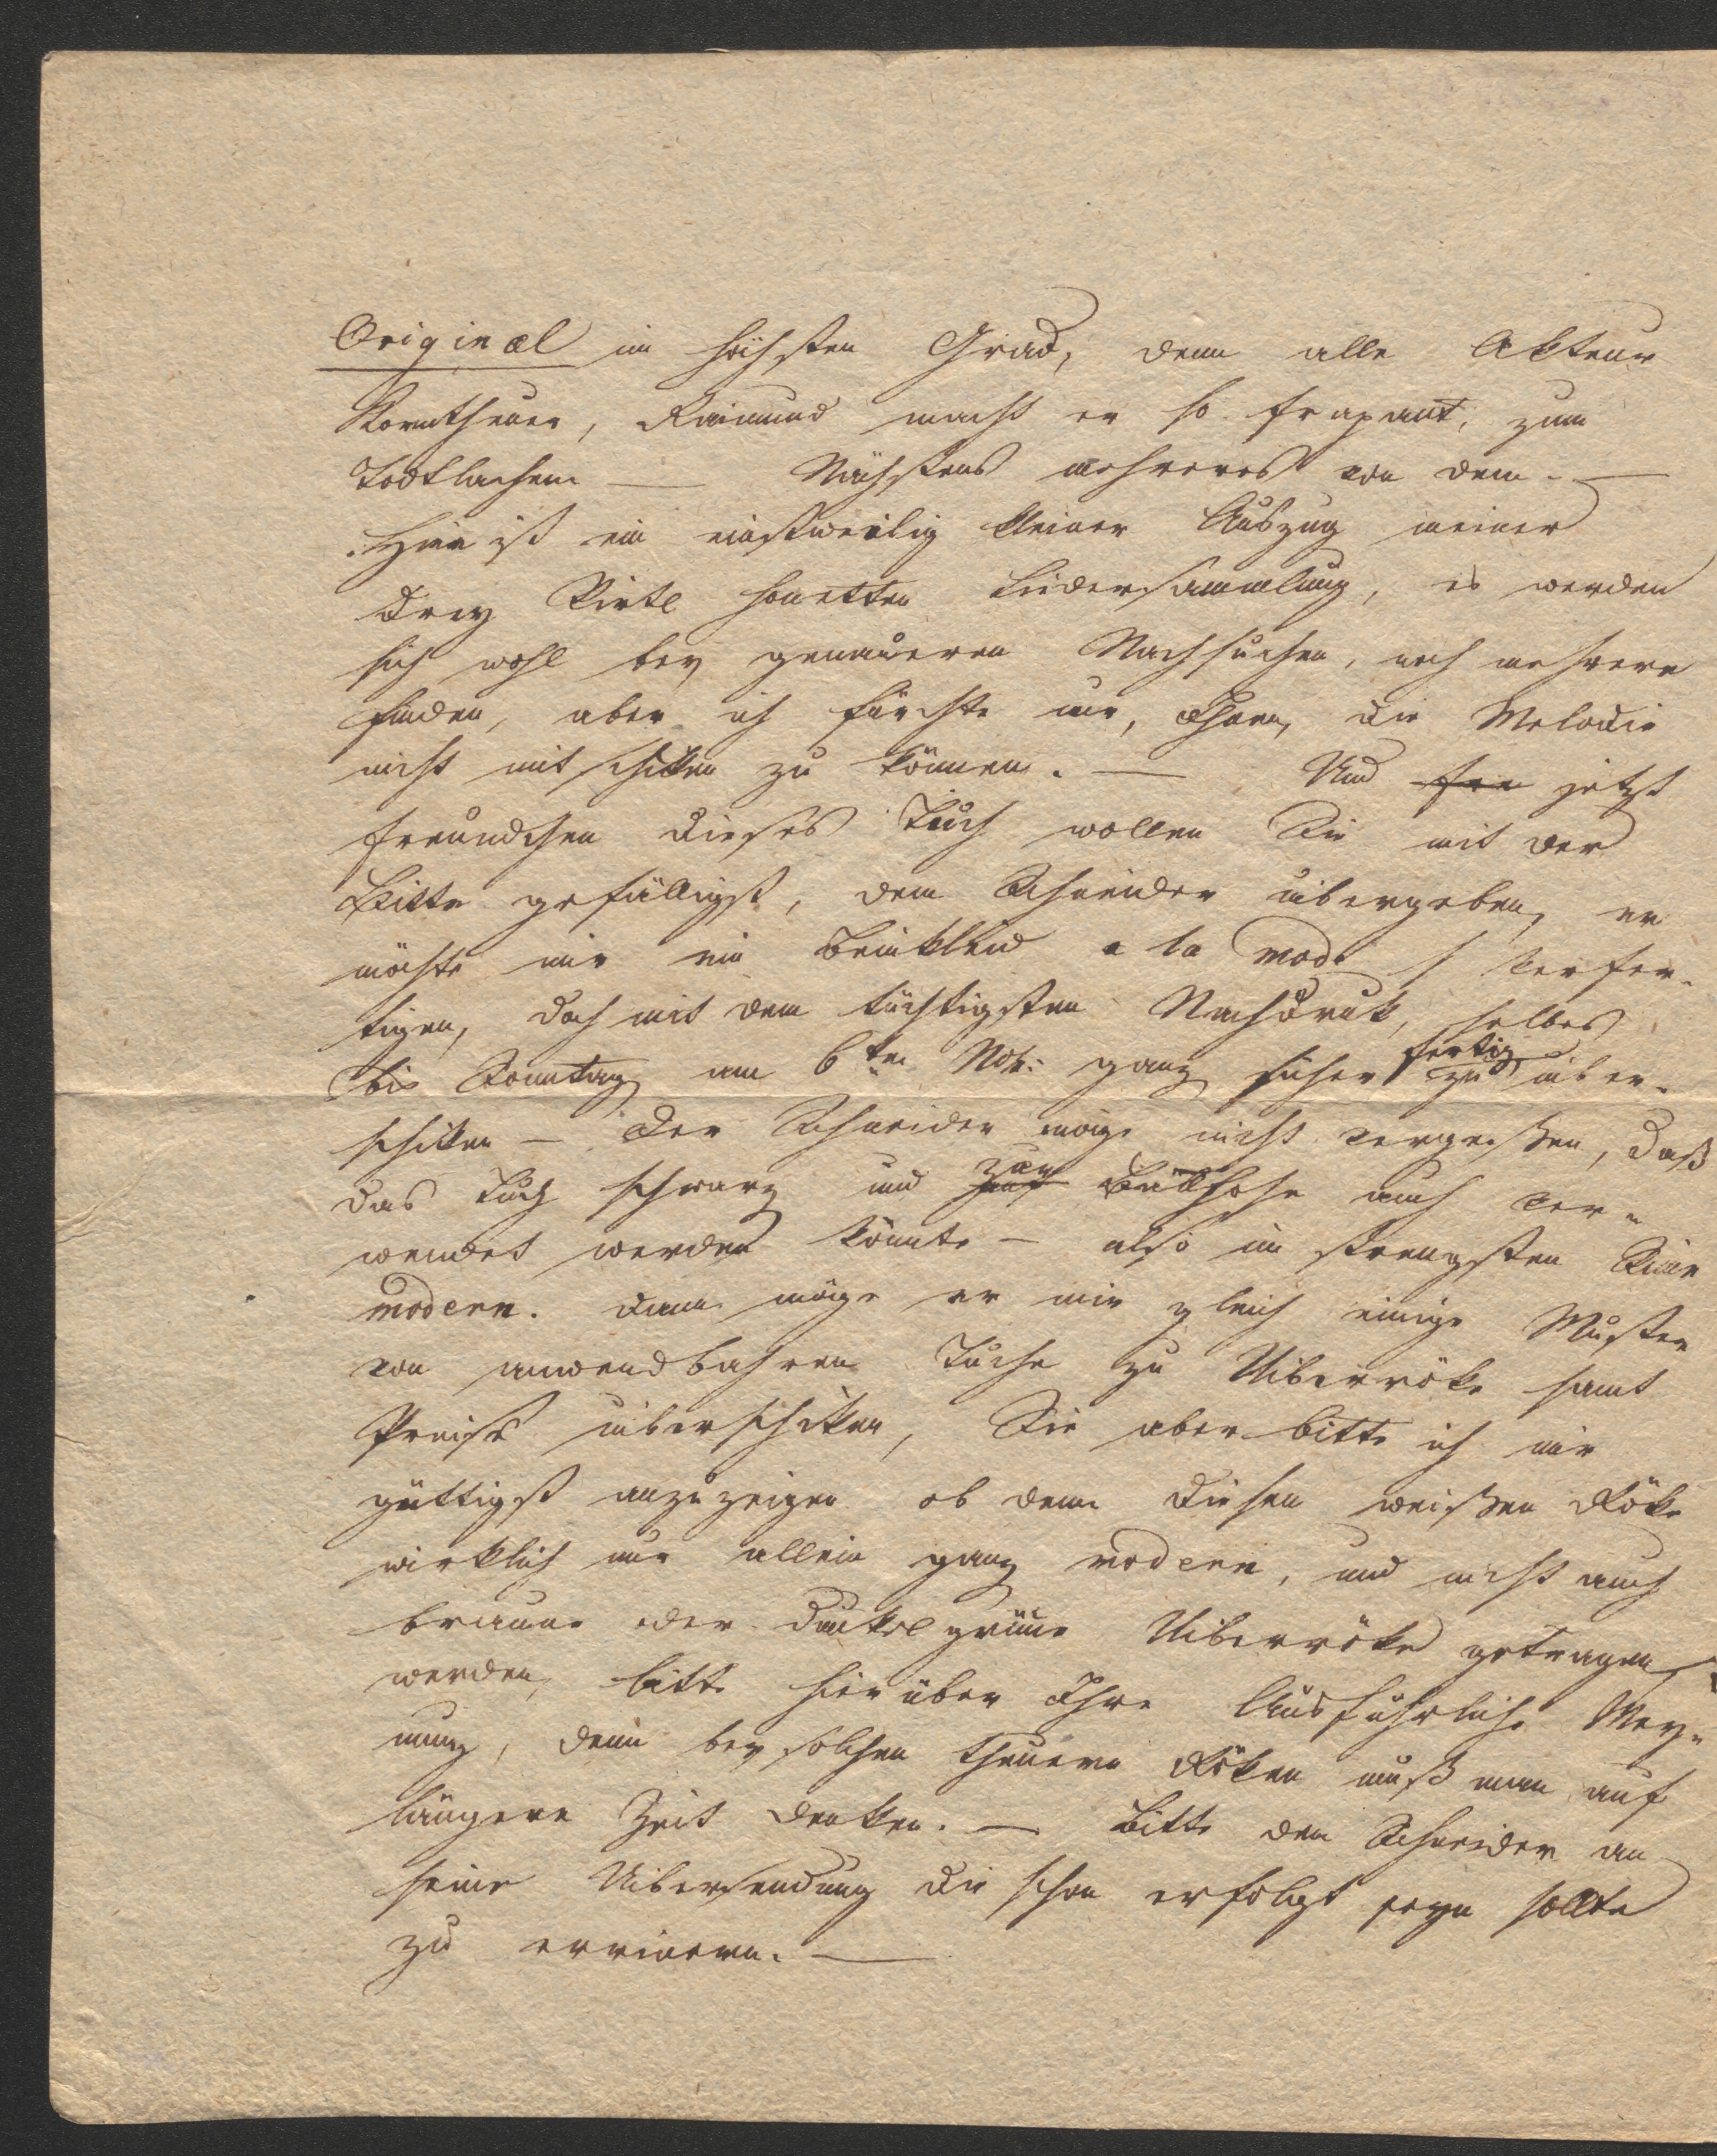 Original im höchsten Grad, denn alle Akteur
Korntheuer, Raimund macht er so frapant, zum
Todtlachen — Nächstens mehreres von dem. —
Hier ist ein einstweilig kleiner Auszug meiner
drey Virtl honetten Liedersammlung, es werden
sich wohl bey genauerem Nachsuchen, noch mehrere
finden, aber ich fürchte nur, Ihnen, die Melodie
nicht mitschiken zu können. — Und jetzt
Freundchen dieses Tuch wollen Sie mit der
Bitte gefälligst, dem Schneider übergeben, er
möchte mir ein Beinkleid a la mode verfer-
tigen, doch mit dem tüchtigsten Nachdruk, selbes
bis Sonntag am 6ten Nov: ganz sicher fertig zu über-
schiken — Der Schneider möge nicht vergeßen, daß
das Tuch schwarz und zur Ballhose auch ver-
wendet werden könnte — also im strengsten Sinne
modern. Dann möge er mir gleich einige Muster
von anwendbahren Tuche zu Uiberröke samt
Preise überschiken, Sie aber bitte ich mir
güttigst anzuzeigen ob denn diesen weißen Röke
wirklich nur allein ganz modern, und nicht auch
braune oder dunkelgrüne Uiberröke getragen
werden, bitte hierüber Ihre Ausführliche Mey-
nung, denn bey solchen theuern Röken muß man auf
längere Zeit denken. — Bitte den Schneider an
seine Uibersendung die schon erfolgt seyn sollte
zu errinern. —